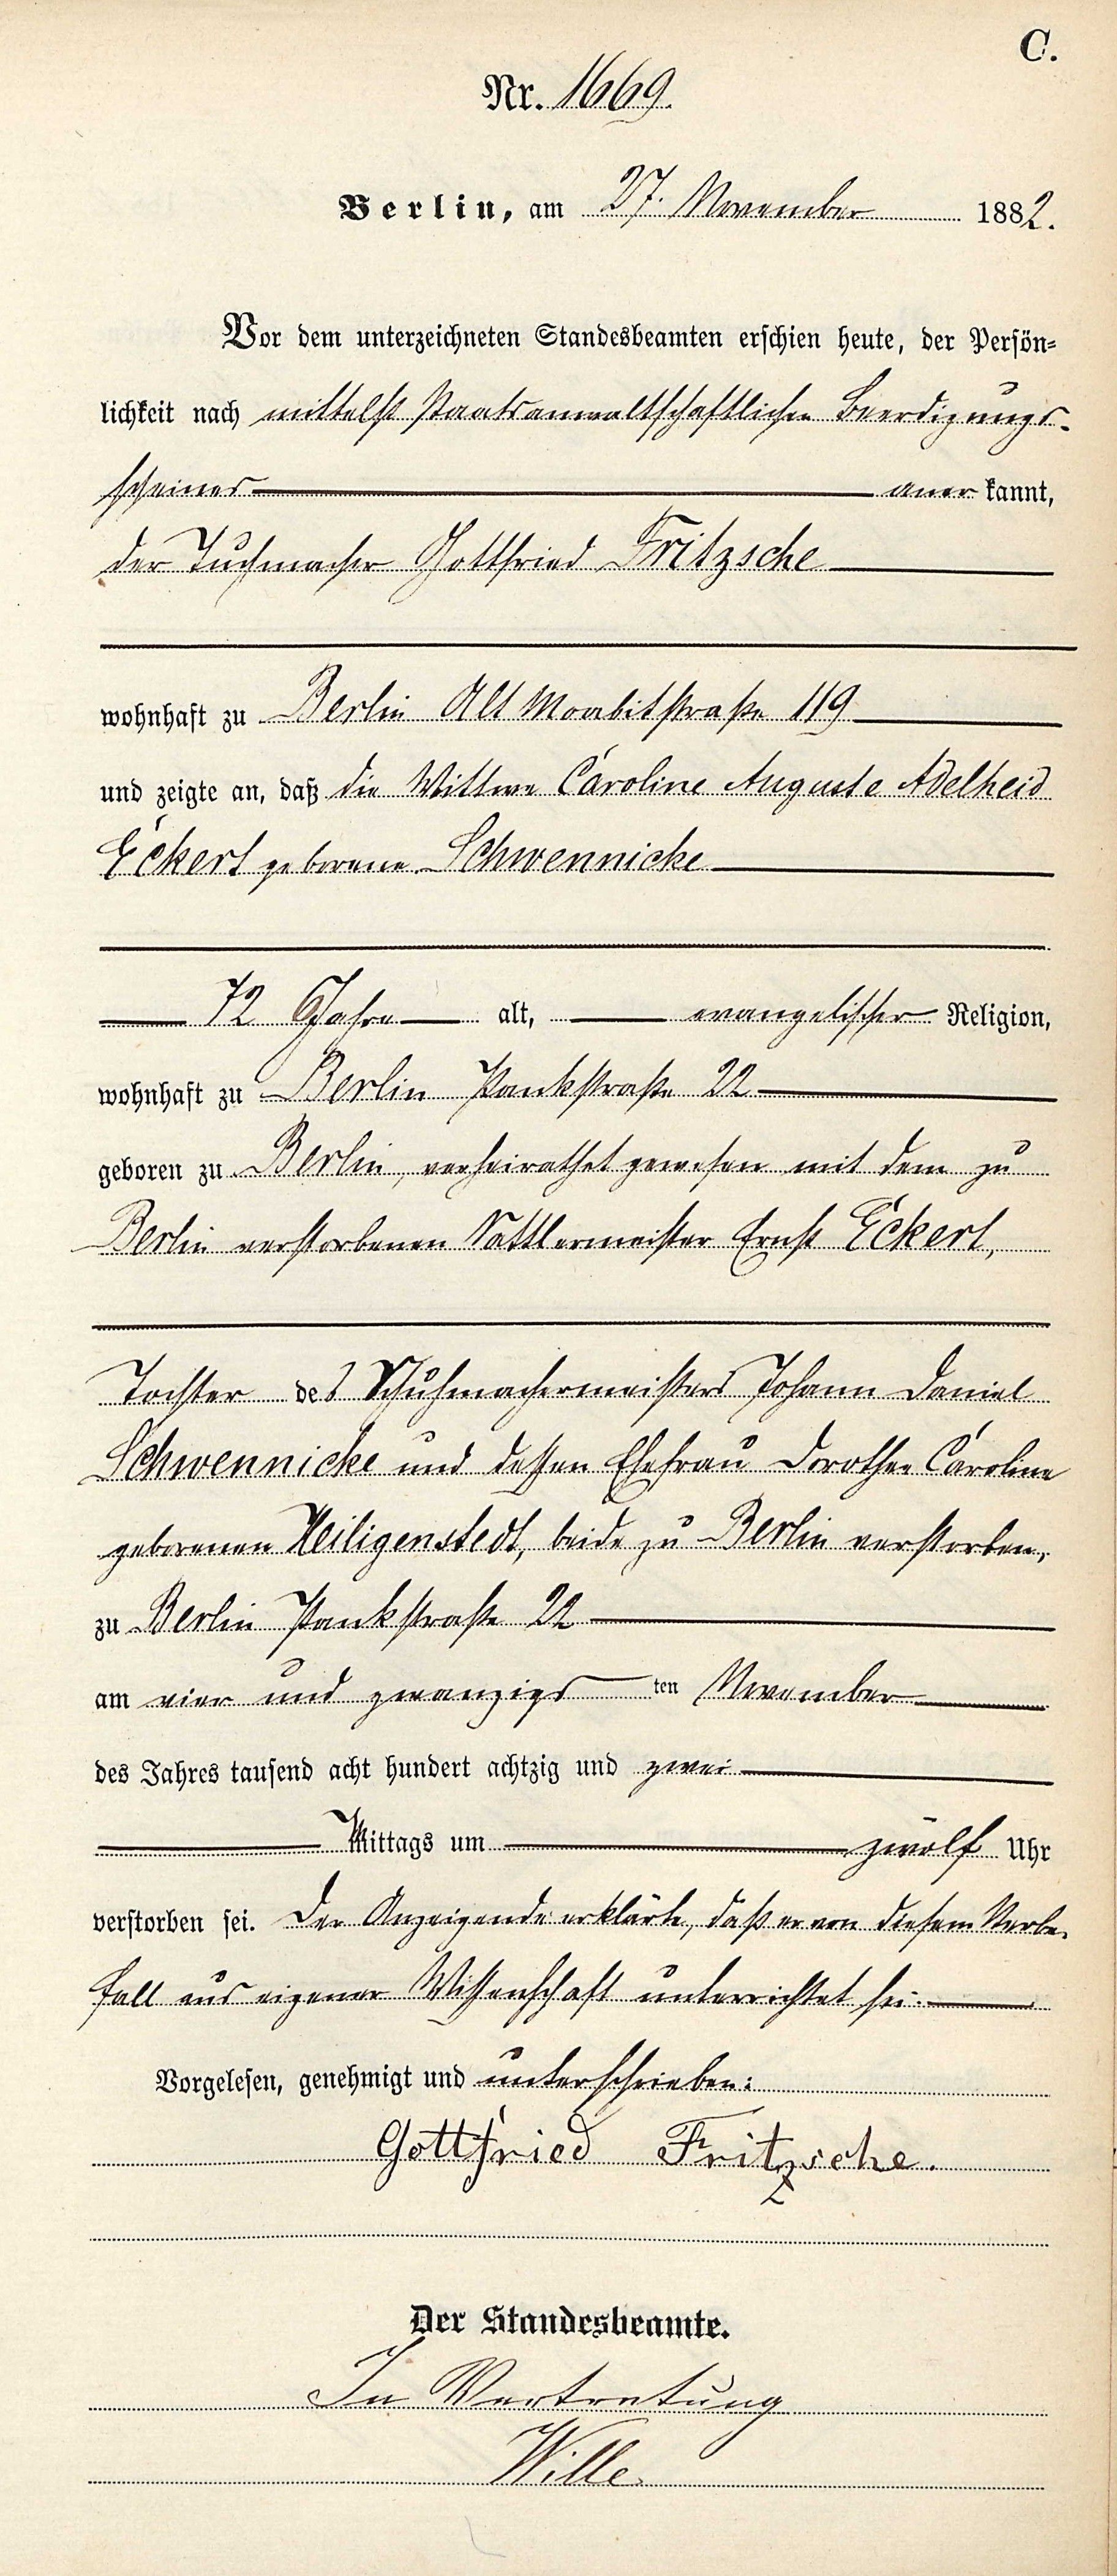 C.
Nr. 1669.
Berlin, am 27. November 1882.
Vor dem unterzeichneten Standesbeamten erschien heute, der Persön-
lichkeit nach mittelst staatsanwaltschaftlichen Beerdigungs-
scheines anerkannt,
der Tuchmacher Gottfried Fritzsche
wohnhaft zu Berlin Alt Moabitstraße 119
und zeigte an, daß die Wittwe Caroline Auguste Adelheid
Eckert geborene Schwennicke
72 Jahre alt, evangelischer Religion,
wohnhaft zu Berlin Pankstraße 22
geboren zu Berlin, verheirathet gewesen mit dem zu
Berlin verstorbenen Sattlermeister Ernst Eckert,
Tochter des Schuhmachermeisters Johann Daniel
Schwennicke und dessen Ehefrau Dorothee Caroline
geborenen Heiligenstedt, beide zu Berlin verstorben,
zu Berlin Pankstraße 22
am vier und zwanzigsten November
des Jahres tausend acht hundert achtzig und zwei
Mittags um zwölf Uhr
verstorben sei. Der Anzeigende erklärte, daß er von diesem Sterbe-
fall aus eigener Wissenschaft unterrichtet sei.
Vorgelesen, genehmigt und unterschrieben:
Gottfried Fritzsche.
Der Standesbeamte.
In Vertretung
Wille.